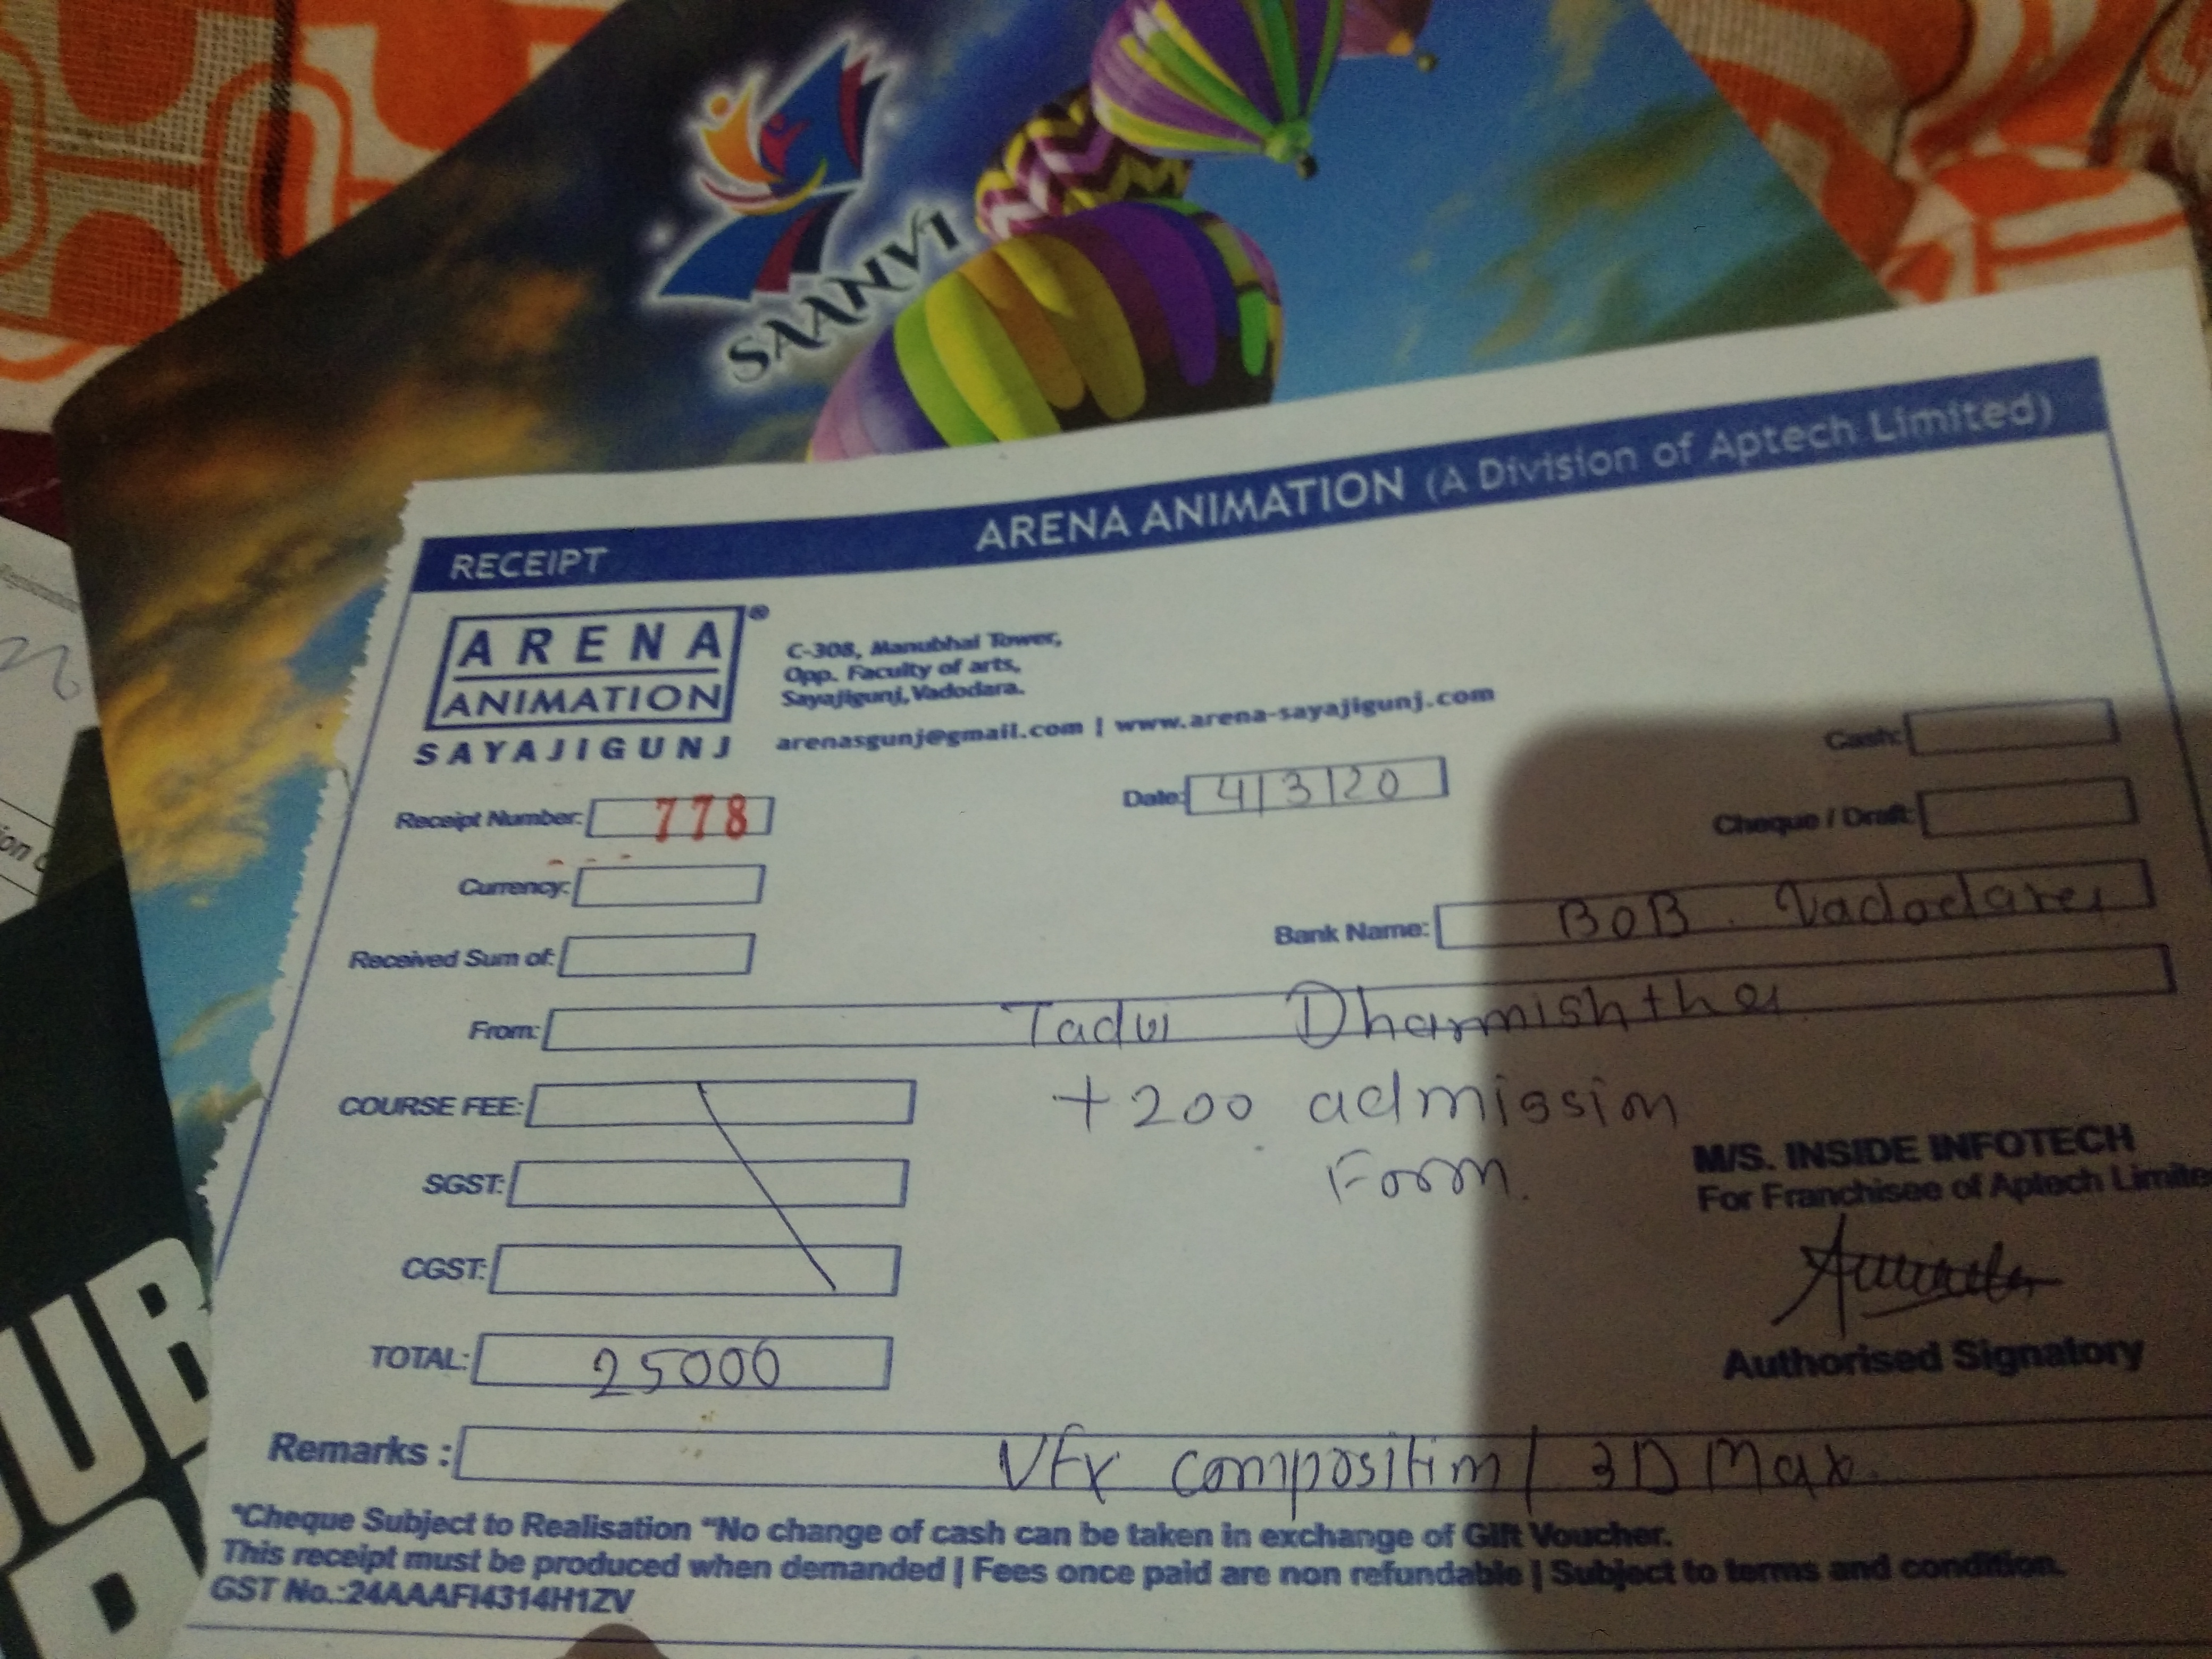 SAANVI
RECEIPT
ARENA ANIMATION (A Division of Aptech Limited)
ARENA
ANIMATION
SAYAJIGUNJ
C-308, Manubhai Tower,
Opp. Faculty of arts,
Sayajigunj, Vadodara.
arenasgunj@gmail.com | www.arena-sayajigunj.com
Receipt Number: 778
Date: 4/3/20
Cash:
Cheque / Draft:
Currency:
Bank Name: BOB. Vadodara
Received Sum of:
From: Tadvi Dharmishtha
COURSE FEE:
+200 admission
Form.
SGST:
CGST:
M/S. INSIDE INFOTECH
For Franchisee of Aptech Limite
Authorised Signatory
TOTAL: 25000
Remarks : VFx compositim / 3D Max
*Cheque Subject to Realisation **No change of cash can be taken in exchange of Gift Voucher.
This receipt must be produced when demanded | Fees once paid are non refundable | Subject to terms and condition.
GST No.:24AAAFI4314H1ZV